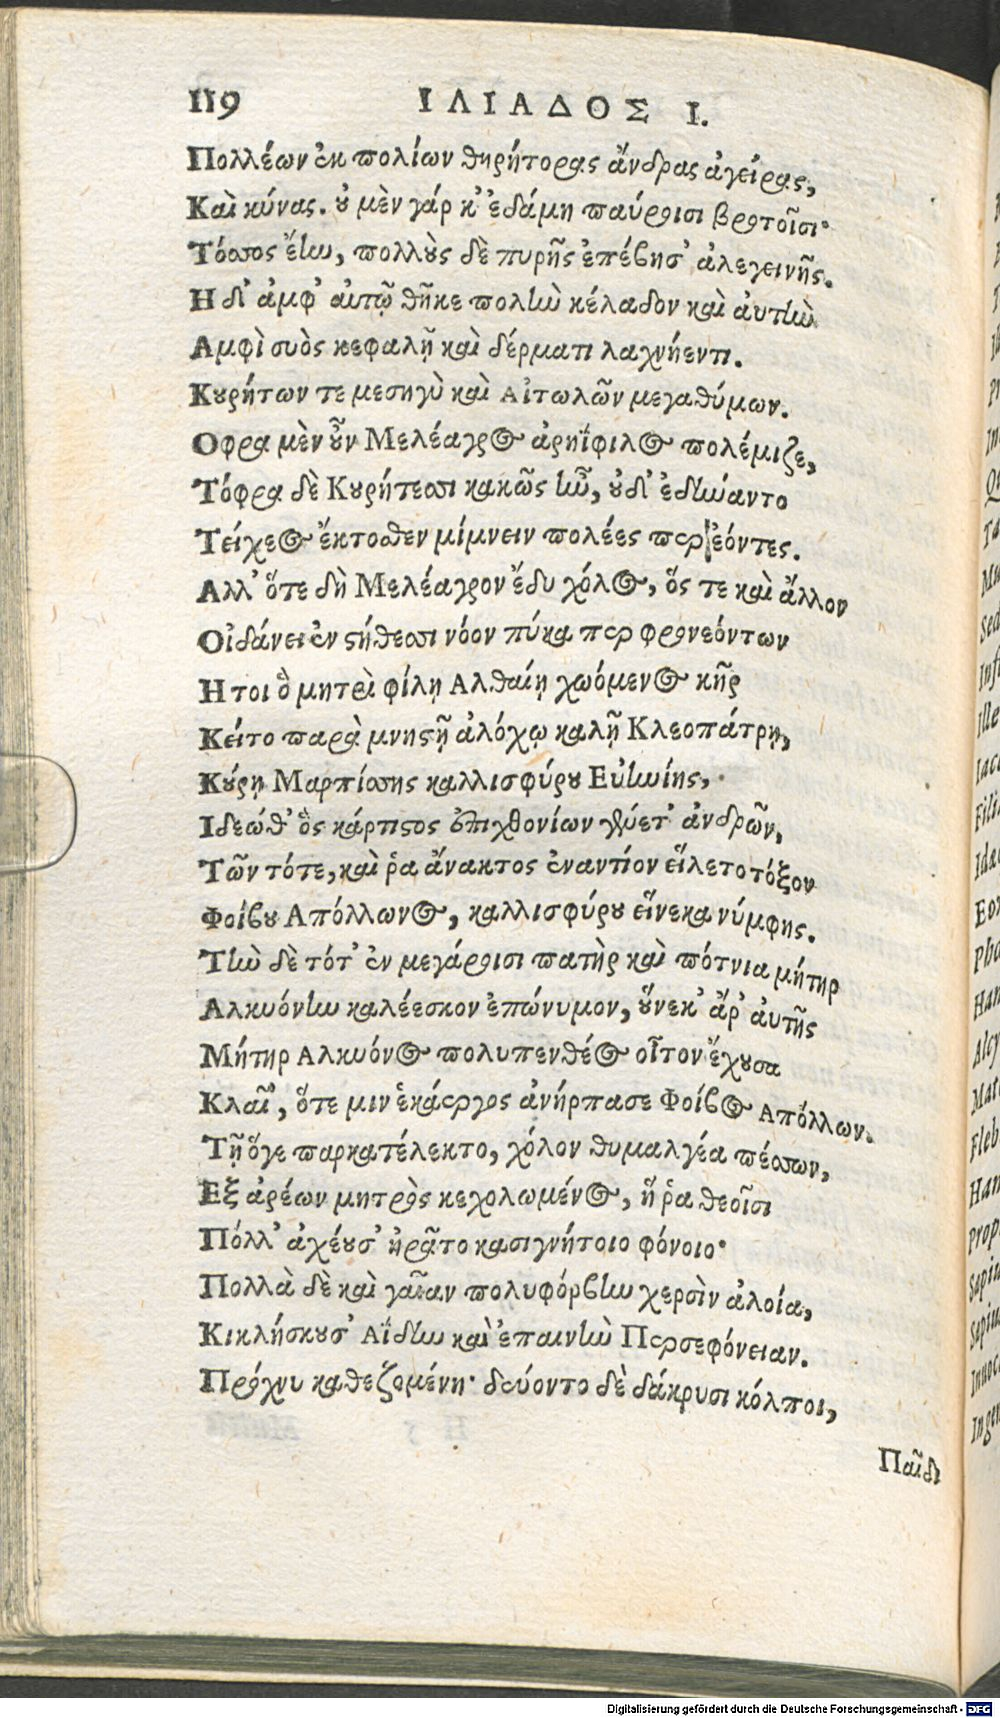 119 ΙΛΙΑΔΟΣ Ι.
Πολλέων ἐκ πολίων θηρήτορας ἄνδρας ἀγείρας,
Καὶ κύνας. οὐ μὲν γάρ κ' ἐδάμη παύροισι βροτοῖσι·
Τόσσος ἔην, πολλοὺς δὲ πυρῆς ἐπέβησ' ἀλεγεινῆς.
Η δ' ἀμφ' αὐτῷ θῆκε πολὺν κέλαδον καὶ ἀυτὴν
Αμφὶ συὸς κεφαλῇ καὶ δέρματι λαχνήεντι.
Κουρήτων τε μεσηγὺ καὶ Αἰτωλῶν μεγαθύμων.
Οφρα μὲν οὖν Μελέαγρος ἀρηΐφιλος πολέμιζε,
Τόφρα δὲ Κουρήτεσσι κακῶς ἦν, οὐδ' ἐδύναντο
Τείχεος ἔκτοσθεν μίμνειν πολέες περ ἐόντες.
Αλλ' ὅτε δὴ Μελέαγρον ἔδυ χόλος, ὅς τε καὶ ἄλλον
Οἰδάνει ἐν στήθεσσι νόον πύκα περ φρονεόντων
Ητοι ὃ μητρὶ φίλῃ Αλθαίῃ χωόμενος κῆρ
Κεῖτο παρὰ μνηστῇ ἀλόχῳ καλῇ Κλεοπάτρῃ,
Κούρῃ Μαρπίσσης καλλισφύρου Εὐηνίης,
Ιδεώθ' ὃς κάρτιστος ἐπιχθονίων γένετ' ἀνδρῶν,
Τῶν τότε, καὶ ῥα ἄνακτος ἐναντίον εἵλετο τόξον
Φοίβου Απόλλωνος, καλλισφύρου εἵνεκα νύμφης.
Τὴν δὲ τότ' ἐν μεγάροισι πατὴρ καὶ πότνια μήτηρ
Αλκυόνην καλέεσκον ἐπώνυμον, οὕνεκ' ἄρ' αὐτῆς
Μήτηρ Αλκυόνος πολυπενθέος οἶτον ἔχουσα
Κλαῖ', ὅτε μιν ἑκάεργος ἀνήρπασε Φοῖβος Απόλλων.
Τῇ ὅγε παρκατέλεκτο, χόλον θυμαλγέα πέσσων,
Εξ ἀρέων μητρὸς κεχολωμένος, ἥ ῥα θεοῖσι
Πόλλ' ἀχέουσ' ἠρᾶτο κασιγνήτοιο φόνοιο·
Πολλὰ δὲ καὶ γαῖαν πολυφόρβην χερσὶν ἀλοία,
Κικλήσκουσ' Αΐδην καὶ ἐπαινὴν Περσεφόνειαν.
Πρόχνυ καθεζομένη· δεύοντο δὲ δάκρυσι κόλποι,
Παῖδι
Digitalisierung gefördert durch die Deutsche Forschungsgemeinschaft - DFG